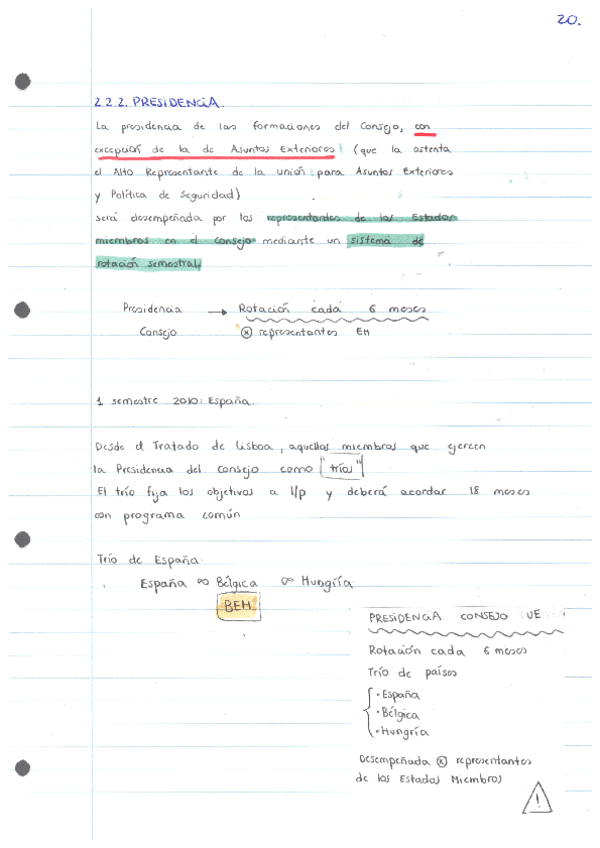 20.
2.2.2. PRESIDENCIA.
La presidencia de las formaciones del Consejo, con
excepción de la de Asuntos Exteriores (que la ostenta
el Alto Representante de la unión para Asuntos Exteriores
y Política de Seguridad)
será desempeñada por los representantes de los Estados
miembros en el consejo mediante un sistema de
rotación semestral,
Presidencia → Rotación cada 6 meses
Consejo ⓧ representantes EM
1 semestre 2010: España.
Desde el Tratado de Lisboa, aquellos miembros que ejercen
la Presidencia del consejo como "tríos"
El trío fija los objetivos a l/p y deberá acordar 18 meses
con programa común
Trío de España.
España ∞ Bélgica ∞ Hungría
BEH
PRESIDENCIA CONSEJO UE
Rotación cada 6 meses
Trío de países
• España
• Bélgica
• Hungría
Desempeñada ⓧ representantes
de los Estados Miembros
!